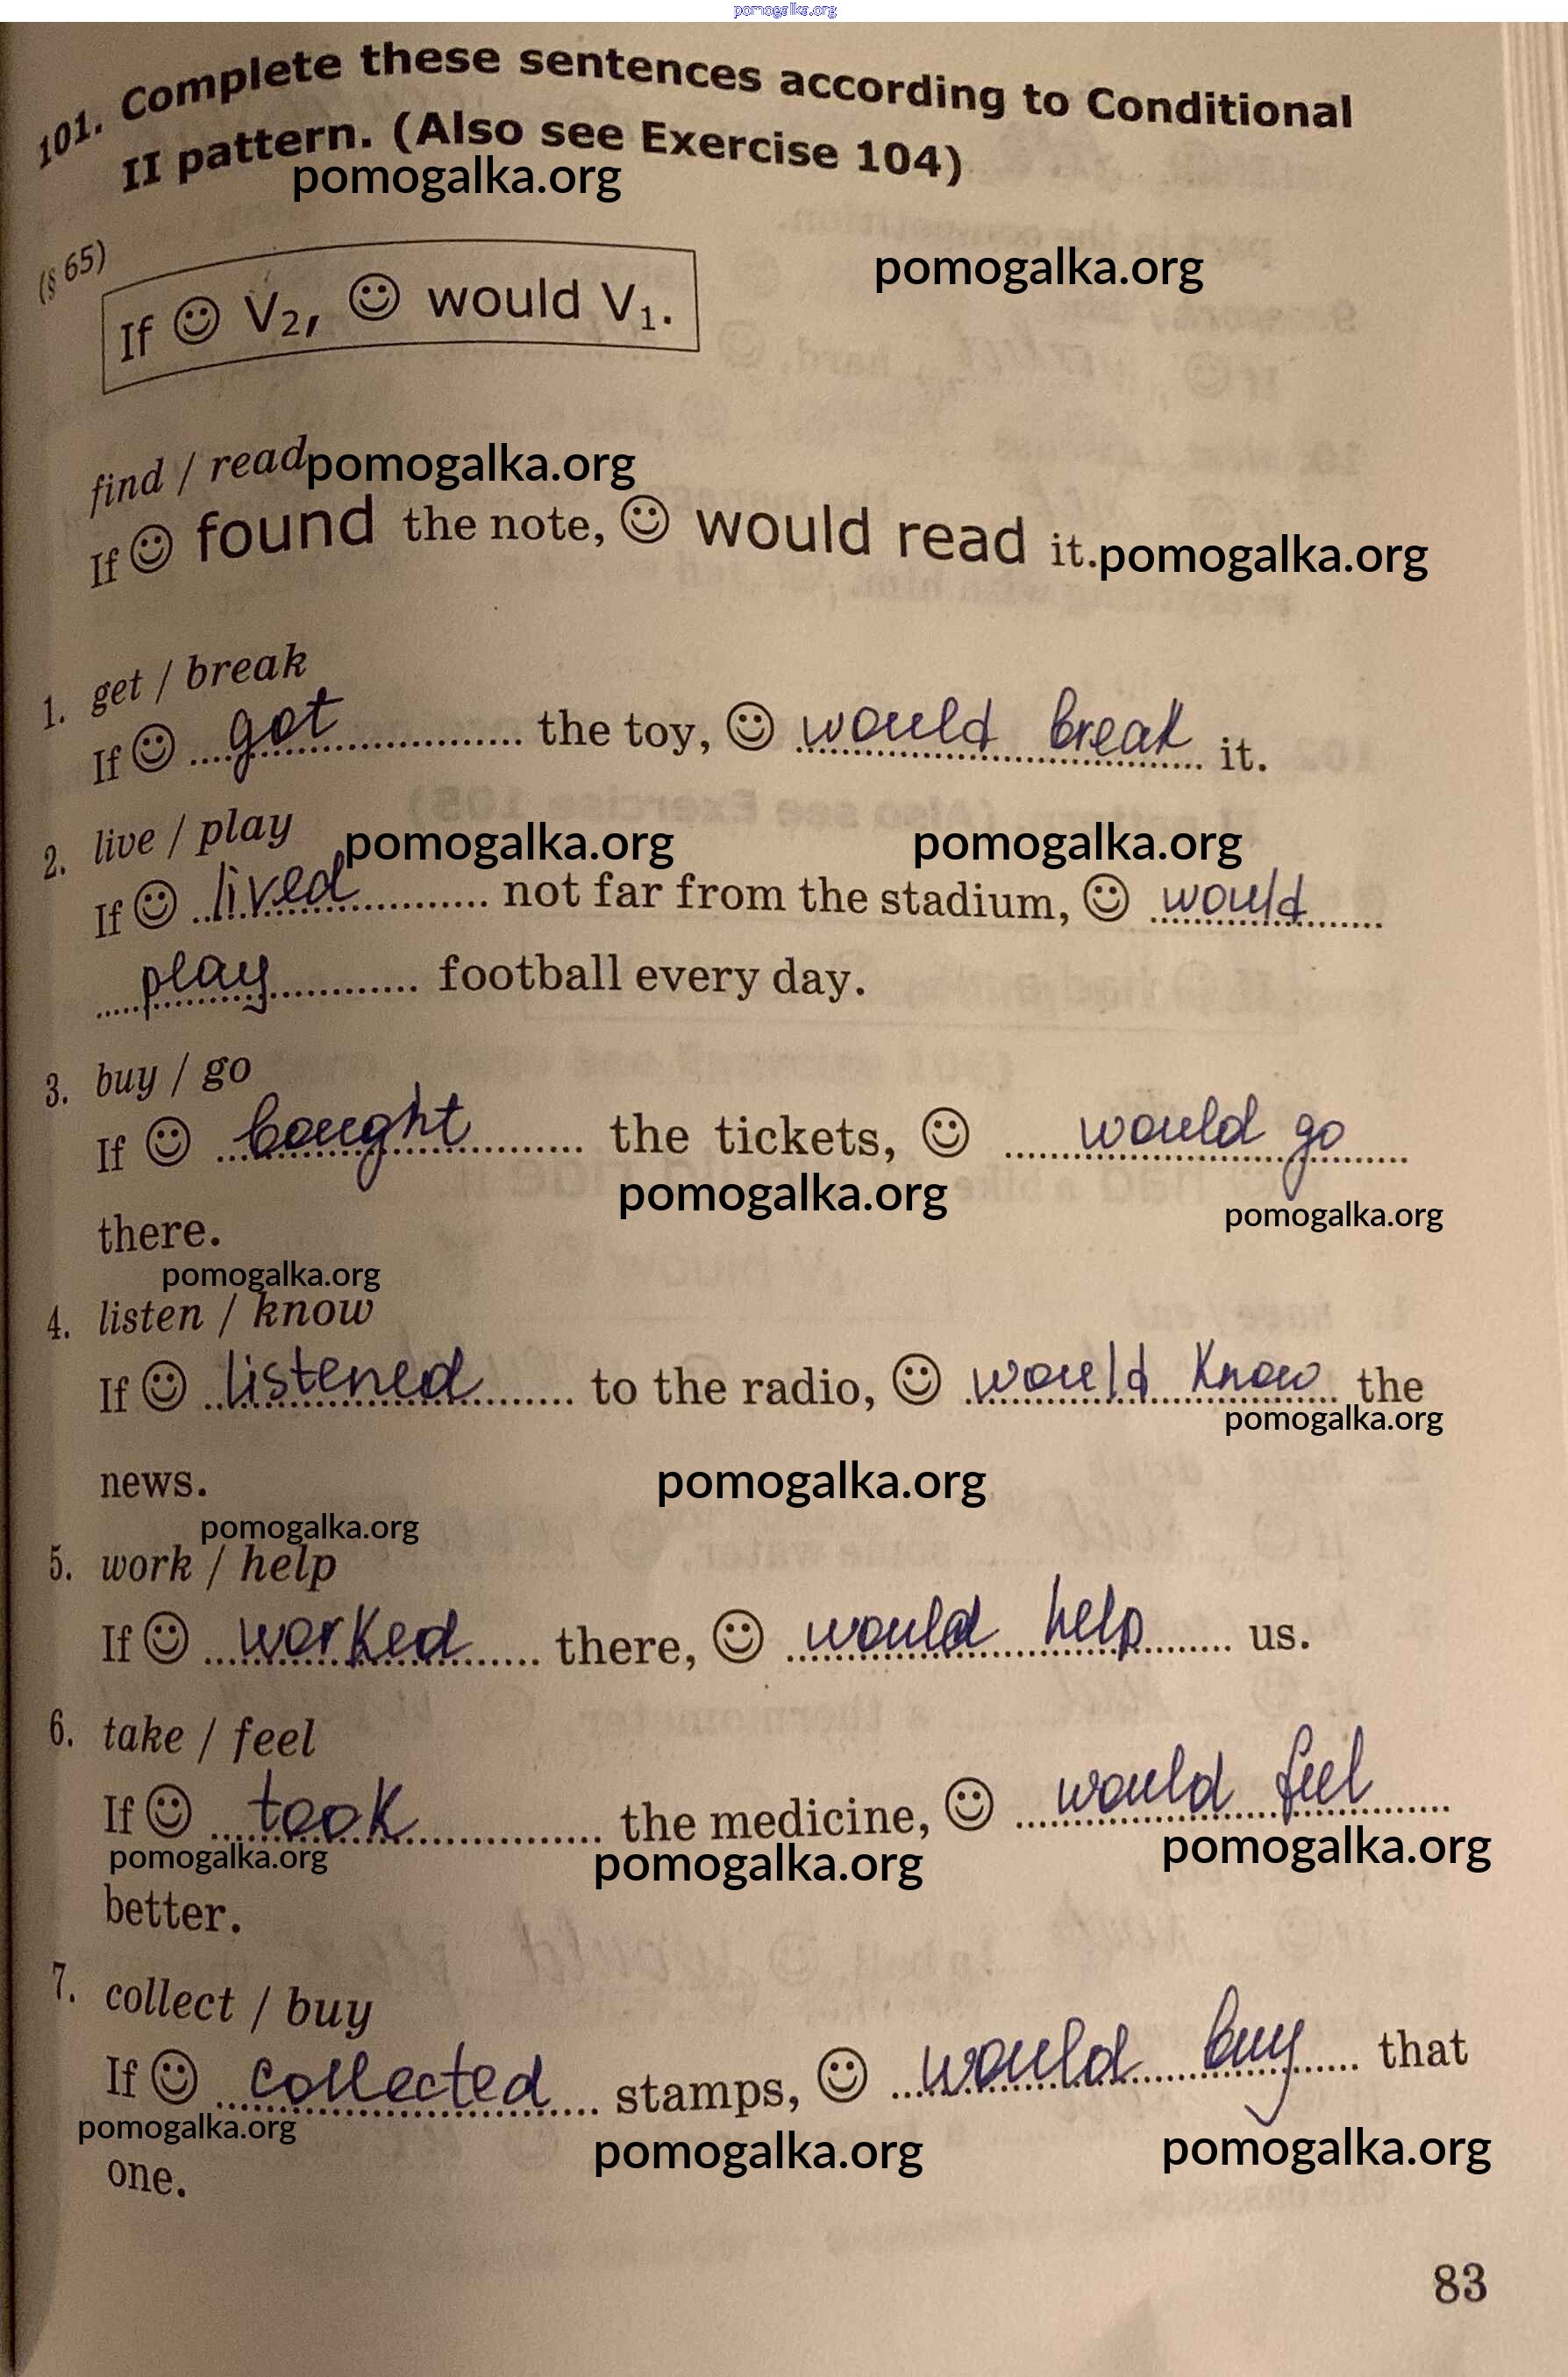 pomogalka.org
101. Complete these sentences according to Conditional
II pattern. (Also see Exercise 104)
pomogalka.org
(§ 65)
pomogalka.org
If ☺ V₂, ☺ would V₁.
find / read
pomogalka.org
If ☺ found the note, ☺ would read it.
pomogalka.org
1. get / break
If ☺ got the toy, ☺ would break it.
2. live / play
pomogalka.org pomogalka.org
If ☺ lived not far from the stadium, ☺ would
play football every day.
3. buy / go
If ☺ bought the tickets, ☺ would go
pomogalka.org pomogalka.org
there.
pomogalka.org
4. listen / know
If ☺ listened to the radio, ☺ would know the
pomogalka.org
news.
pomogalka.org
pomogalka.org
5. work / help
If ☺ worked there, ☺ would help us.
6. take / feel
If ☺ took the medicine, ☺ would feel
pomogalka.org pomogalka.org pomogalka.org
better.
7. collect / buy
If ☺ collected stamps, ☺ would buy that
pomogalka.org pomogalka.org pomogalka.org
one.
83